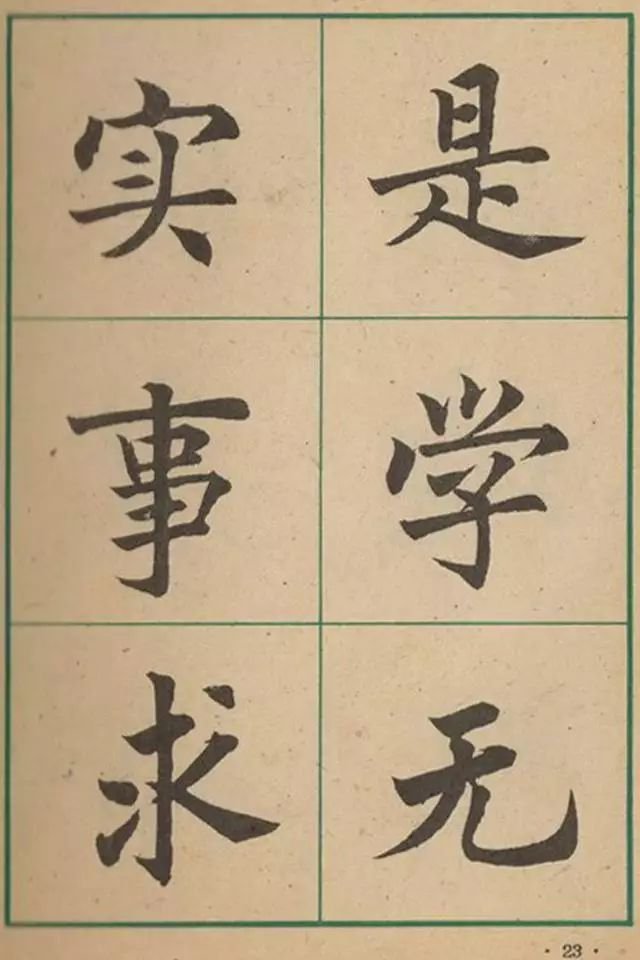 实事求
是学无
·23·